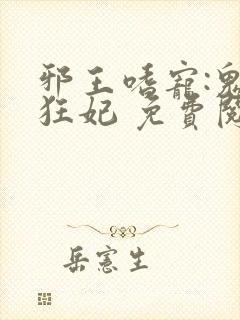 邪王嗜寵:鬼
狂妃 免費閱
岳憲生